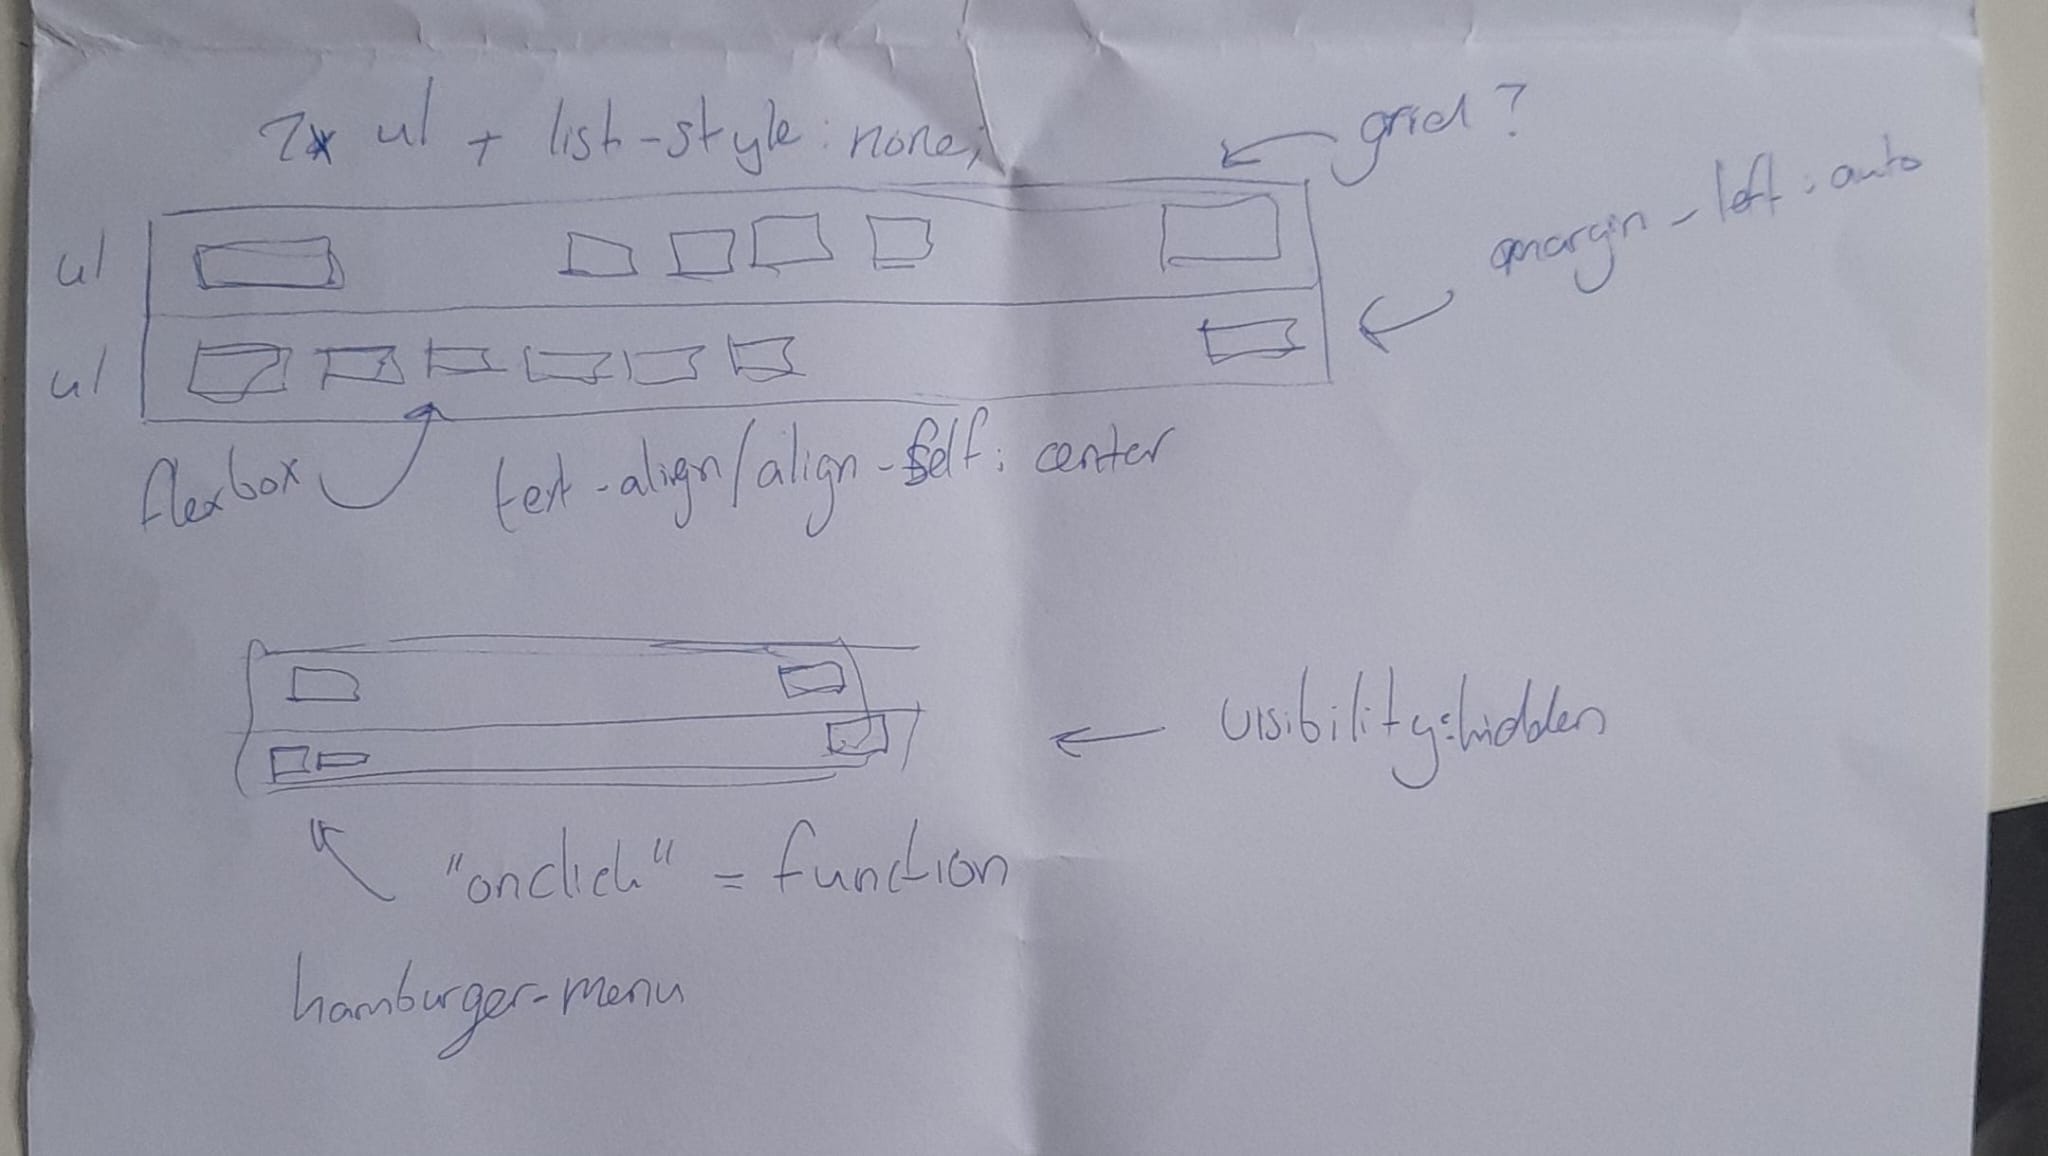 2x ul + list-style: none;
grid?
margin-left: auto
ul
ul
flexbox
text-align/align-self: center
visibility:hidden
"onclick" = function
hamburger-menu